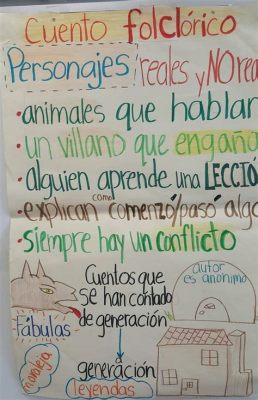 Cuento folclórico
Personajes reales y NO rea
• animales que hablar
• un villano que engaño
• alguien aprende una LECCIÓ
como
• explican comenzó/pasó algo
• siempre hay un conflicto
Cuentos que
se han contado
de generación
a
generación
autor
es anónimo
Fábulas
moraleja
leyendas